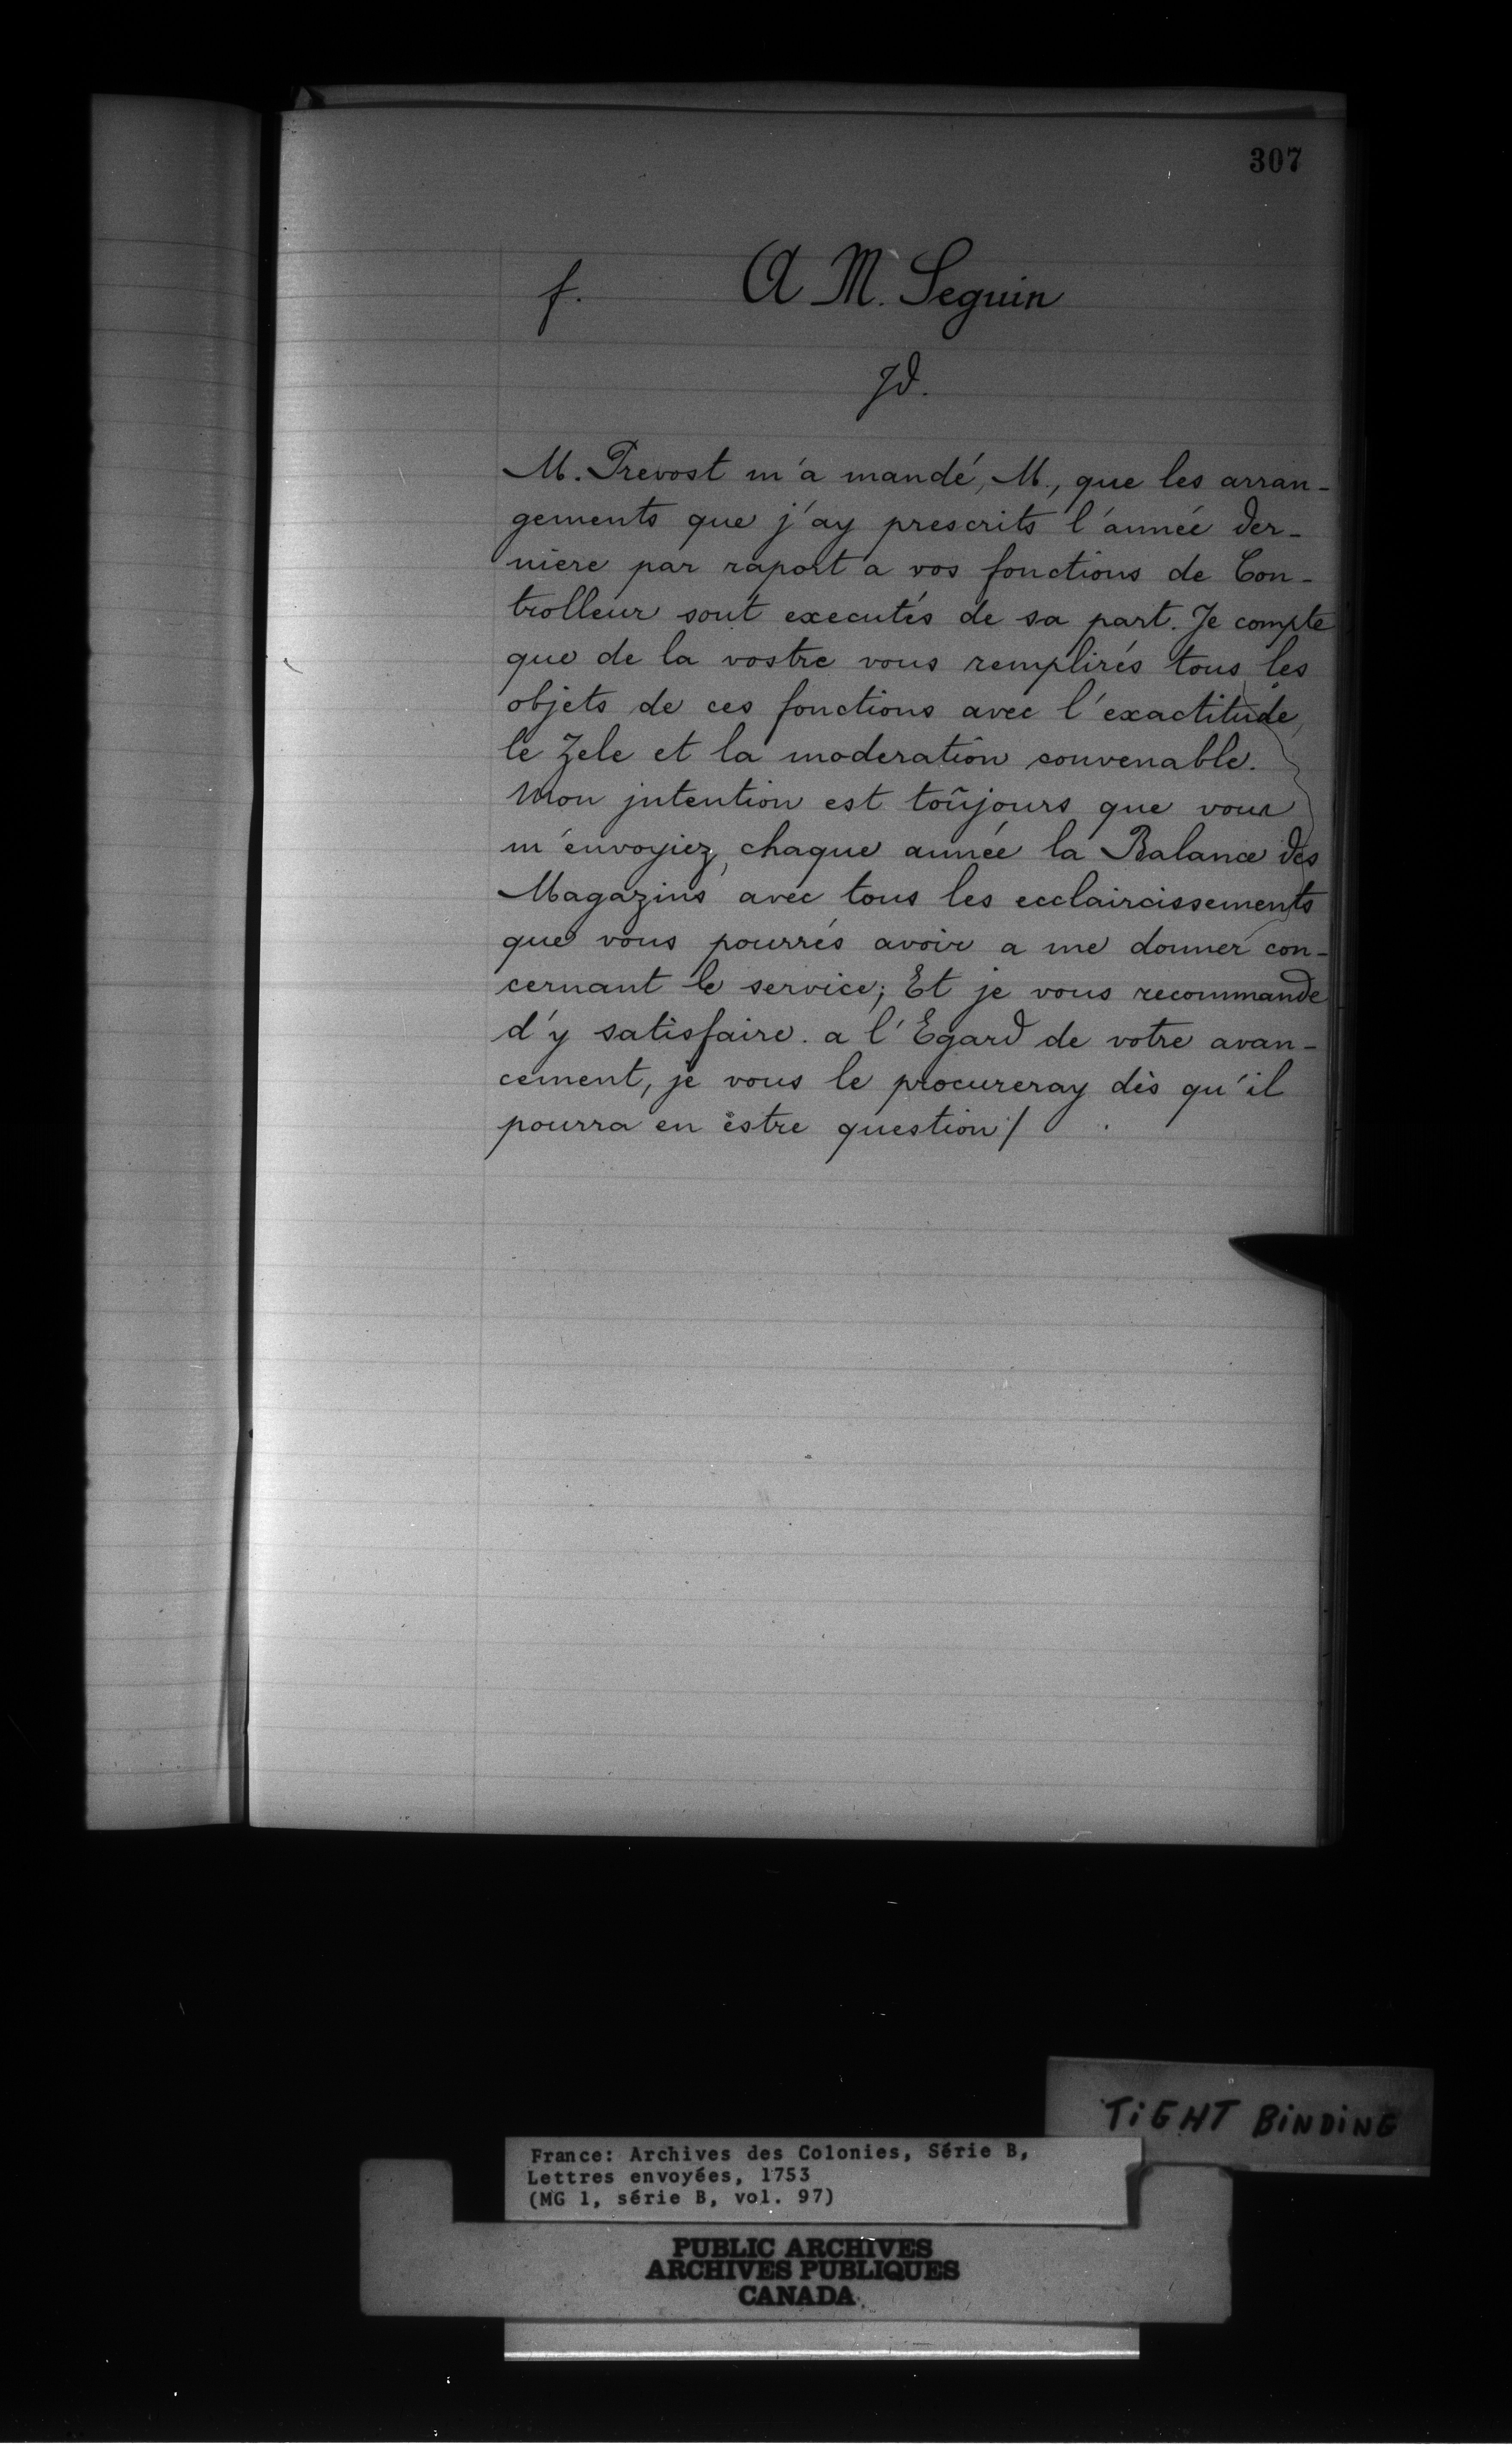 307
f. A M. Seguin
Jd.
M. Prevost m'a mandé, M., que les arran-
gements que j'ay prescrits l'année der-
niere par raport a vos fonctions de Con-
trolleur sont executés de sa part. Je compte
que de la vostre vous remplirés tous les
objets de ces fonctions avec l'exactitude,
le Zele et la moderation convenable.
Mon jntention est toûjours que vous
m'envoyiez, chaque année la Balance des
Magazins avec tous les ecclaircissements
que vous pourrés avoir a me donner con-
cernant le service; Et je vous recommande
d'y satisfaire. a l'Egard de votre avan-
cement, je vous le procureray dès qu'il
pourra en estre question /.
TiGHT BiNDiNG
France: Archives des Colonies, Série B,
Lettres envoyées, 1753
(MG 1, série B, vol. 97)
PUBLIC ARCHIVES
ARCHIVES PUBLIQUES
CANADA